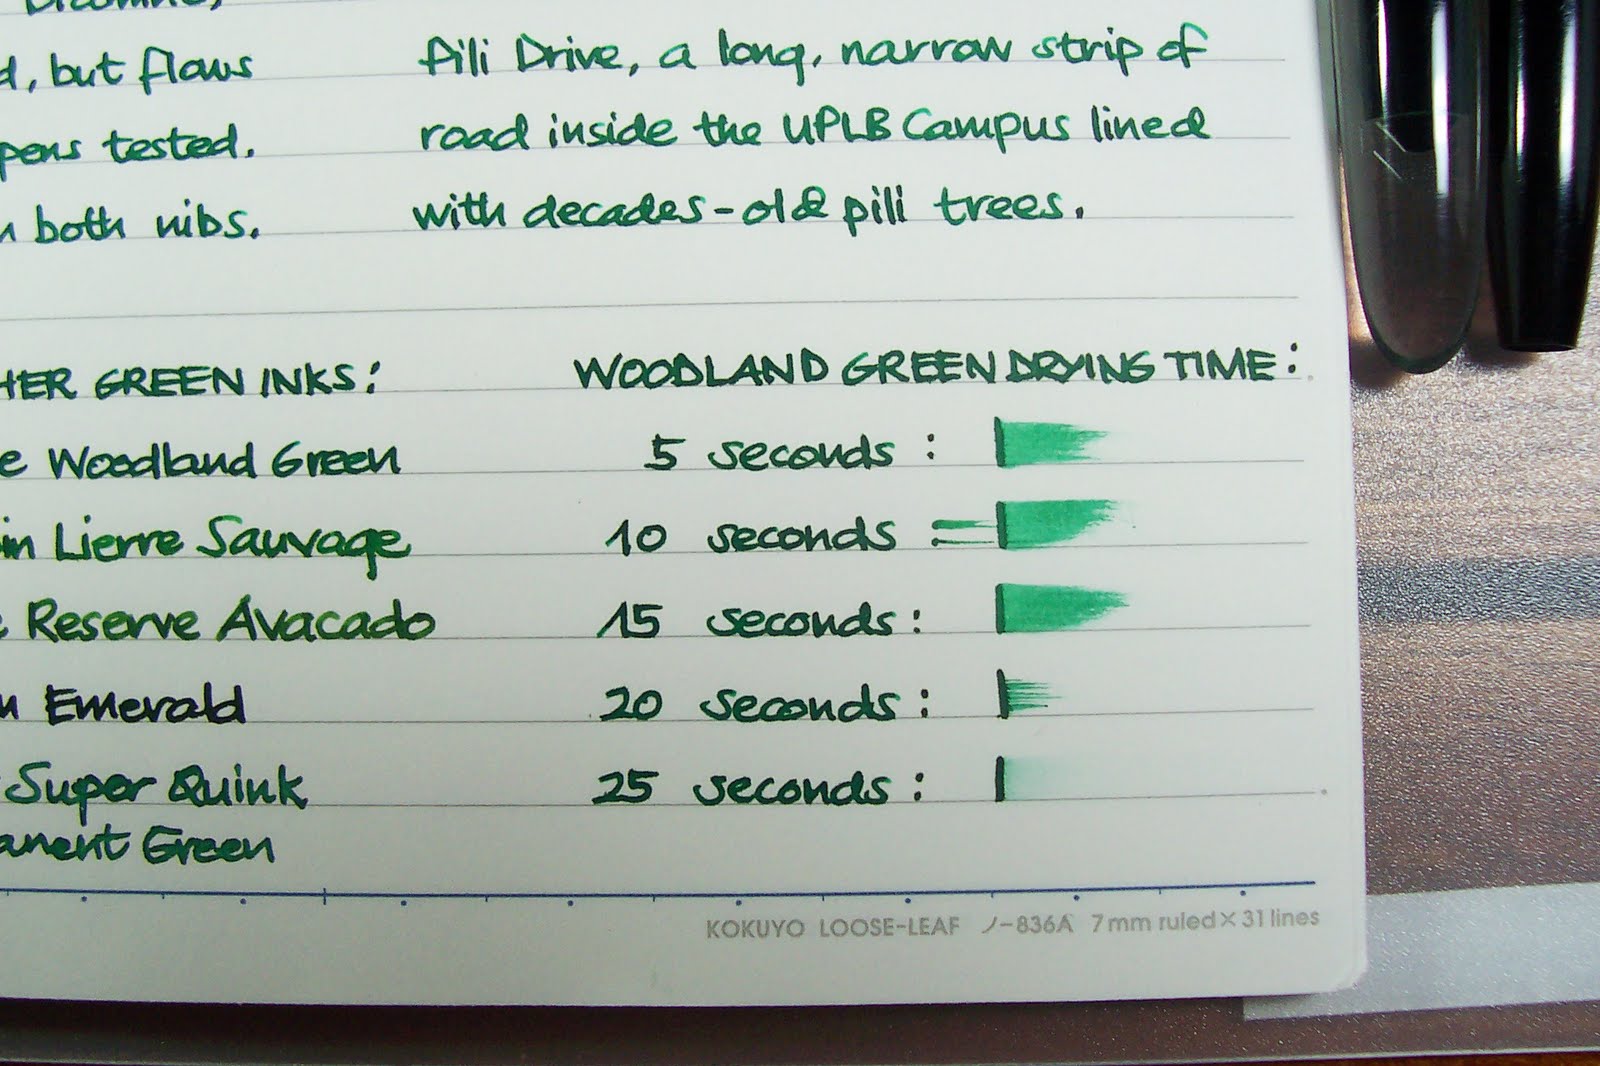 but flows
Pili Drive, a long, narrow strip of
pens tested.
road inside the UPLB Campus lined
both nibs.
with decades-old pili trees.
GREEN INKS:
WOODLAND GREEN DRYING TIME:
Woodland Green
5 seconds :
Lierre Sauvage
10 seconds :
Reserve Avacado
15 seconds :
Emerald
20 seconds :
Super Quink
25 seconds :
Green
KOKUYO LOOSE-LEAF ノ-836A 7mm ruled×31lines